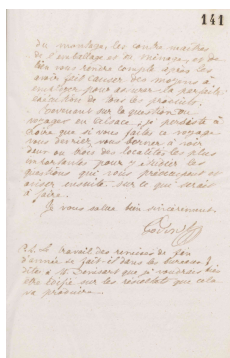 141
du montage, les contre-maîtres
de l'emballage et M. Ménager, et de
bien vous rendre compte après les
avoir fait causer des moyens à
employer pour assurer la parfaite
exécution de tous les produits.
Revenant sur la question du
voyage en Alsace, je persiste à
croire que si vous faites ce voyage
vous devriez vous borner à voir
deux ou trois des localités les plus
importantes pour y étudier les
questions qui vous préoccupent et
aviser ensuite sur ce que serait
à faire.
Je vous salue bien sincèrement.
Godin
P.S. Le travail des remises de fin
d'année se fait-il dans les bureaux ?
dites à M. que je voudrais bien
être fixé sur les résultats que cela
va produire.